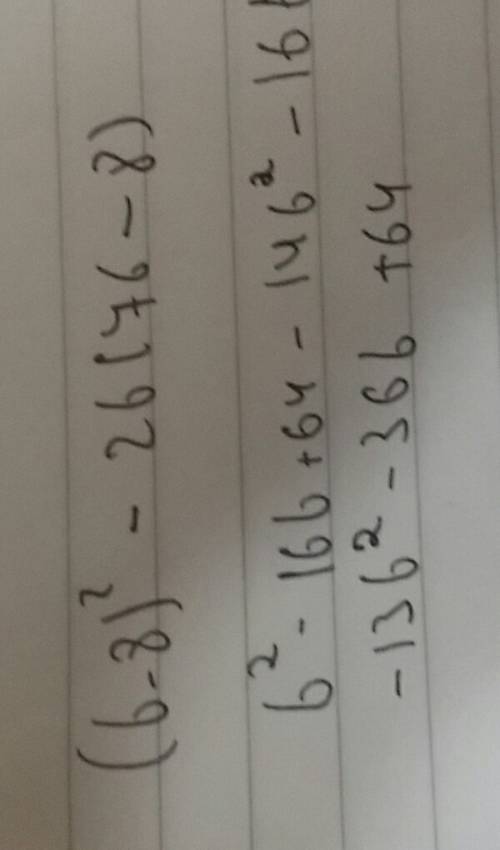 (b-8)² - 2b(7b-8)
b² - 16b + 64 - 14b² - 16
-13b² - 36b + 64